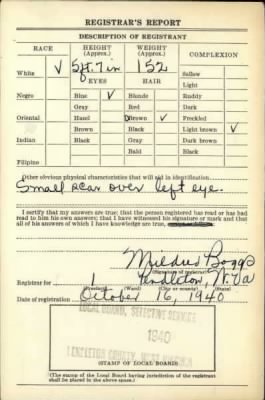 REGISTRAR'S REPORT
DESCRIPTION OF REGISTRANT
RACE HEIGHT (Approx.) WEIGHT (Approx.) COMPLEXION
White ✓ 5ft. 7in 152 Sallow
EYES HAIR Light
Negro Blue ✓ Blonde Ruddy
Gray Red Dark
Oriental Hazel Brown ✓ Freckled
Brown Black Light brown ✓
Indian Black Gray Dark brown
Bald Black
Filipino
Other obvious physical characteristics that will aid in identification
Small scar over left eye.
I certify that my answers are true; that the person registered has read or has had
read to him his own answers; that I have witnessed his signature or mark and that
all of his answers of which I have knowledge are true,
Mildred Boggs
(Signature of registrar)
Registrar for 1 Pendleton, W. Va
(Precinct) (Ward) (City or county) (State)
Date of registration October 16, 1940
LOCAL BOARD, SELECTIVE SERVICE
1940
PENDLETON COUNTY, WEST VIRGINIA
(STAMP OF LOCAL BOARD)
(The stamp of the Local Board having jurisdiction of the registrant
shall be placed in the above space.)